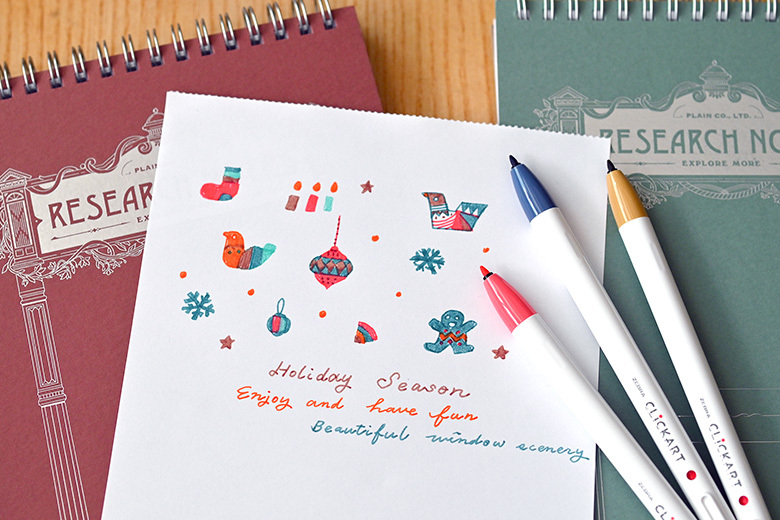 PLAIN
RESEAR
EX
PLAIN CO., LTD.
RESEARCH NO
EXPLORE MORE
Holiday Season
Enjoy and have fun
Beautiful window scenery
ZEBRA CLiCKART
ZEBRA CLiCKART
ZEBRA CLiCKART